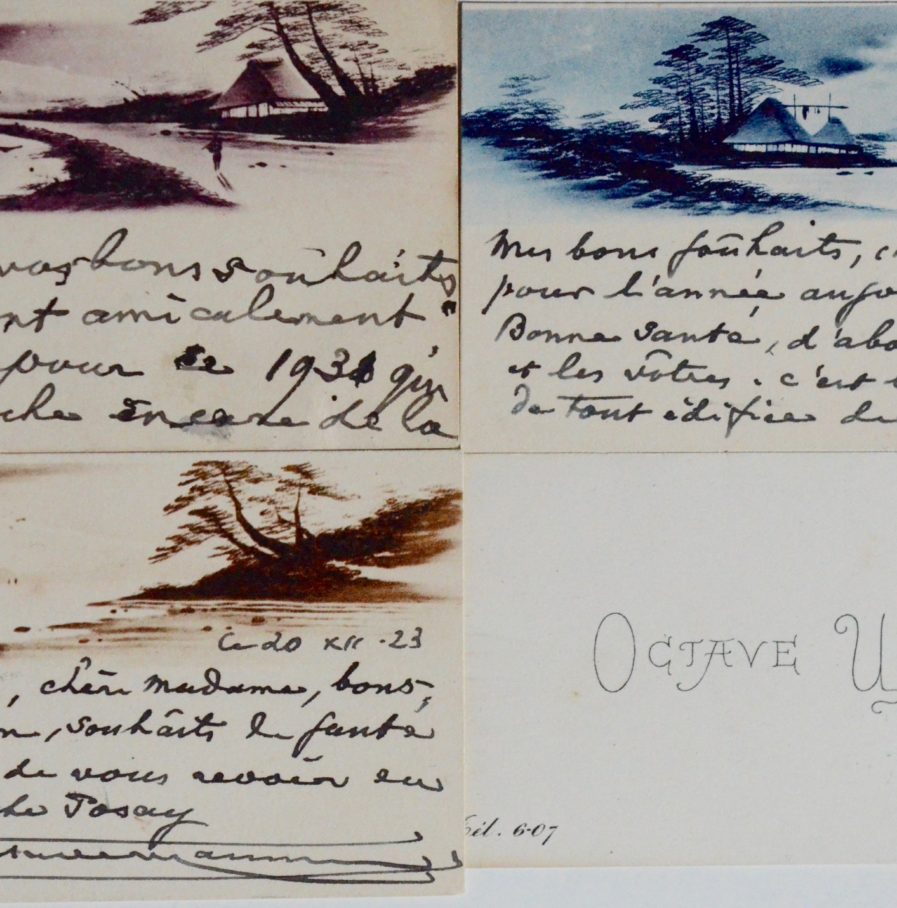 vos bons souhaits
nt amicalement
pour 1931 qui
che encore de la
Mes bons souhaits, c
pour l'année aujo
Bonne Santé, d'abo
et les vôtres. c'est
de tout édifice du
Ce 20 XII - 23
, chère Madame, bons
n, souhaits de santé
de vous revoir en
che Posay
OCTAVE U
Tél. 6-07